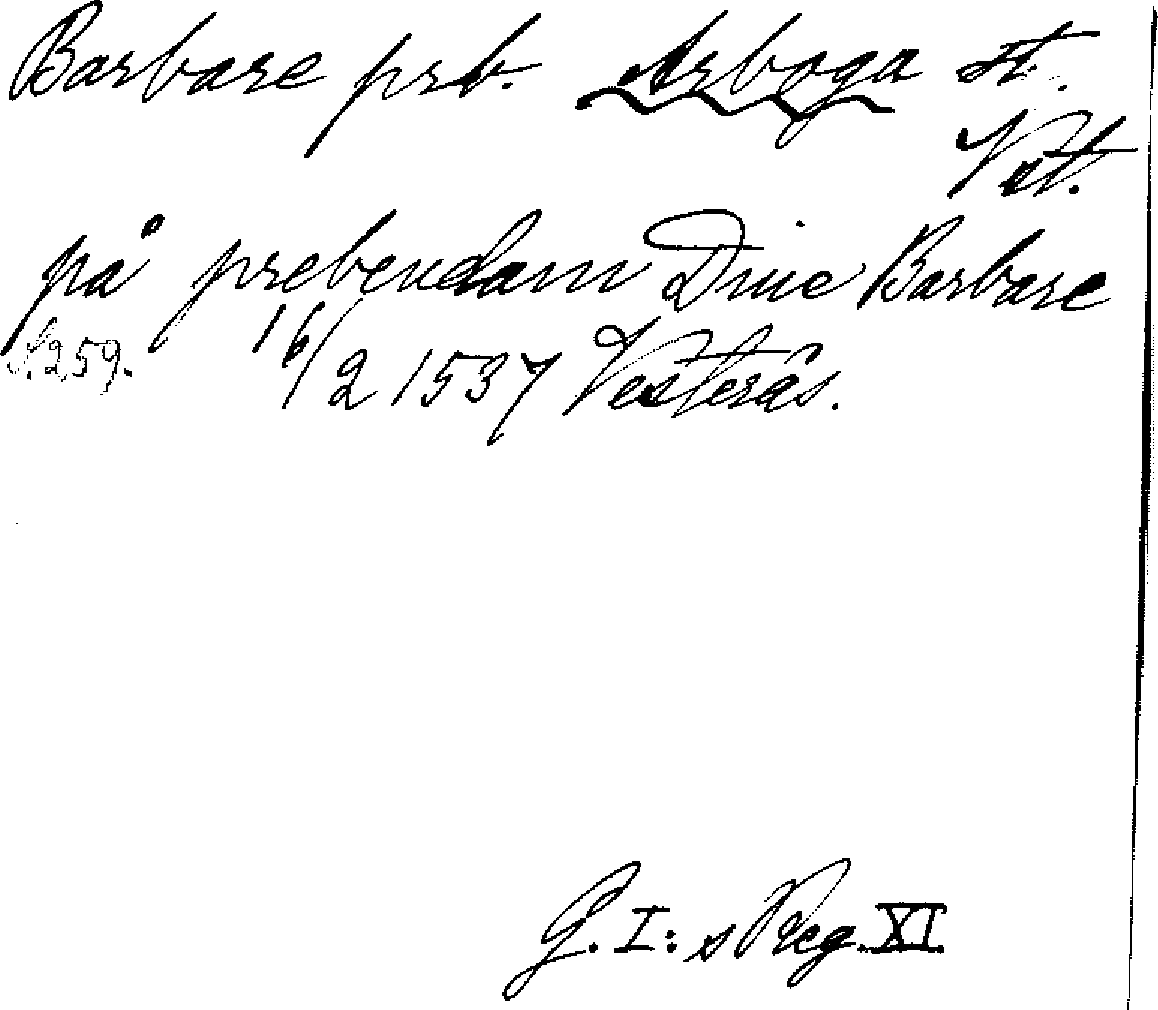 Barbare prb. Arboga st.
Vst.
på prebendam Diue Barbare
S. 259. 16/2 1537 Vesterås.
G. I: s Reg. XI.